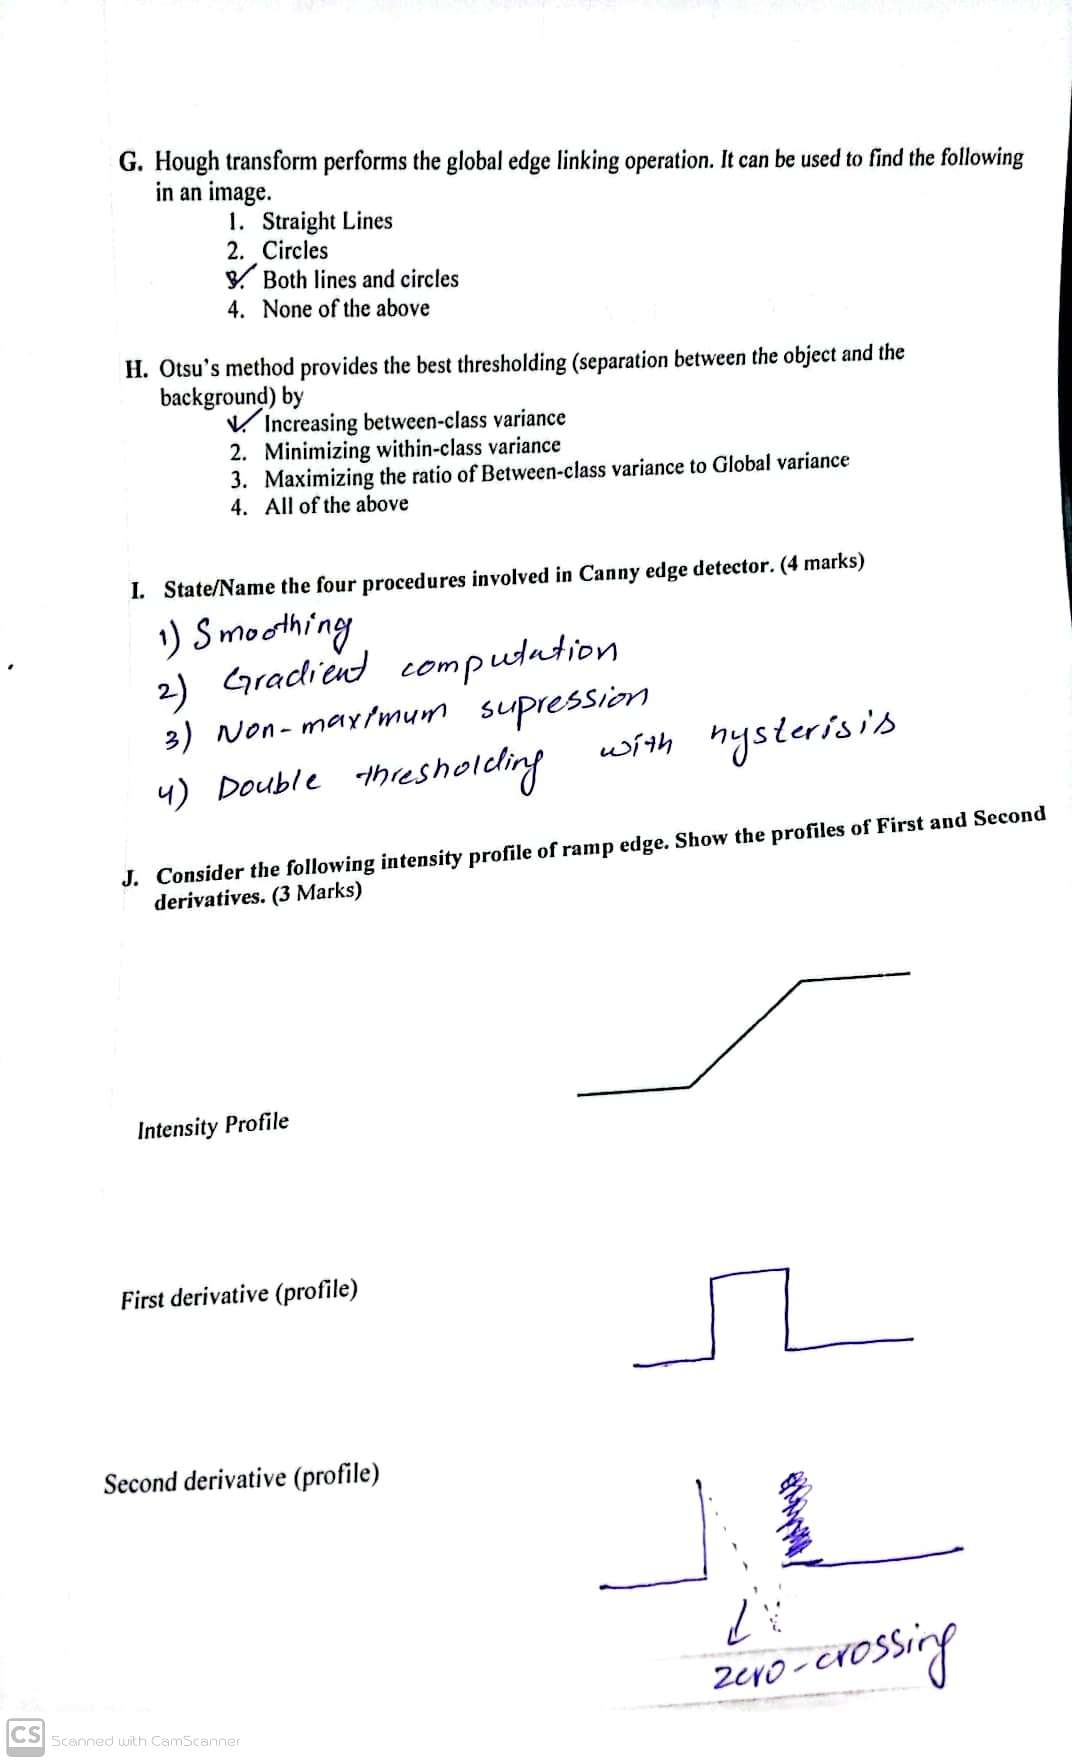 G. Hough transform performs the global edge linking operation. It can be used to find the following
in an image.
1. Straight Lines
2. Circles
3. Both lines and circles
4. None of the above
H. Otsu's method provides the best thresholding (separation between the object and the
background) by
1. Increasing between-class variance
2. Minimizing within-class variance
3. Maximizing the ratio of Between-class variance to Global variance
4. All of the above
I. State/Name the four procedures involved in Canny edge detector. (4 marks)
1) Smoothing
2) Gradient computation
3) Non-maximum supression
4) Double thresholding with hysterisis
J. Consider the following intensity profile of ramp edge. Show the profiles of First and Second
derivatives. (3 Marks)
Intensity Profile
First derivative (profile)
Second derivative (profile)
zero-crossing
CS Scanned with CamScanner